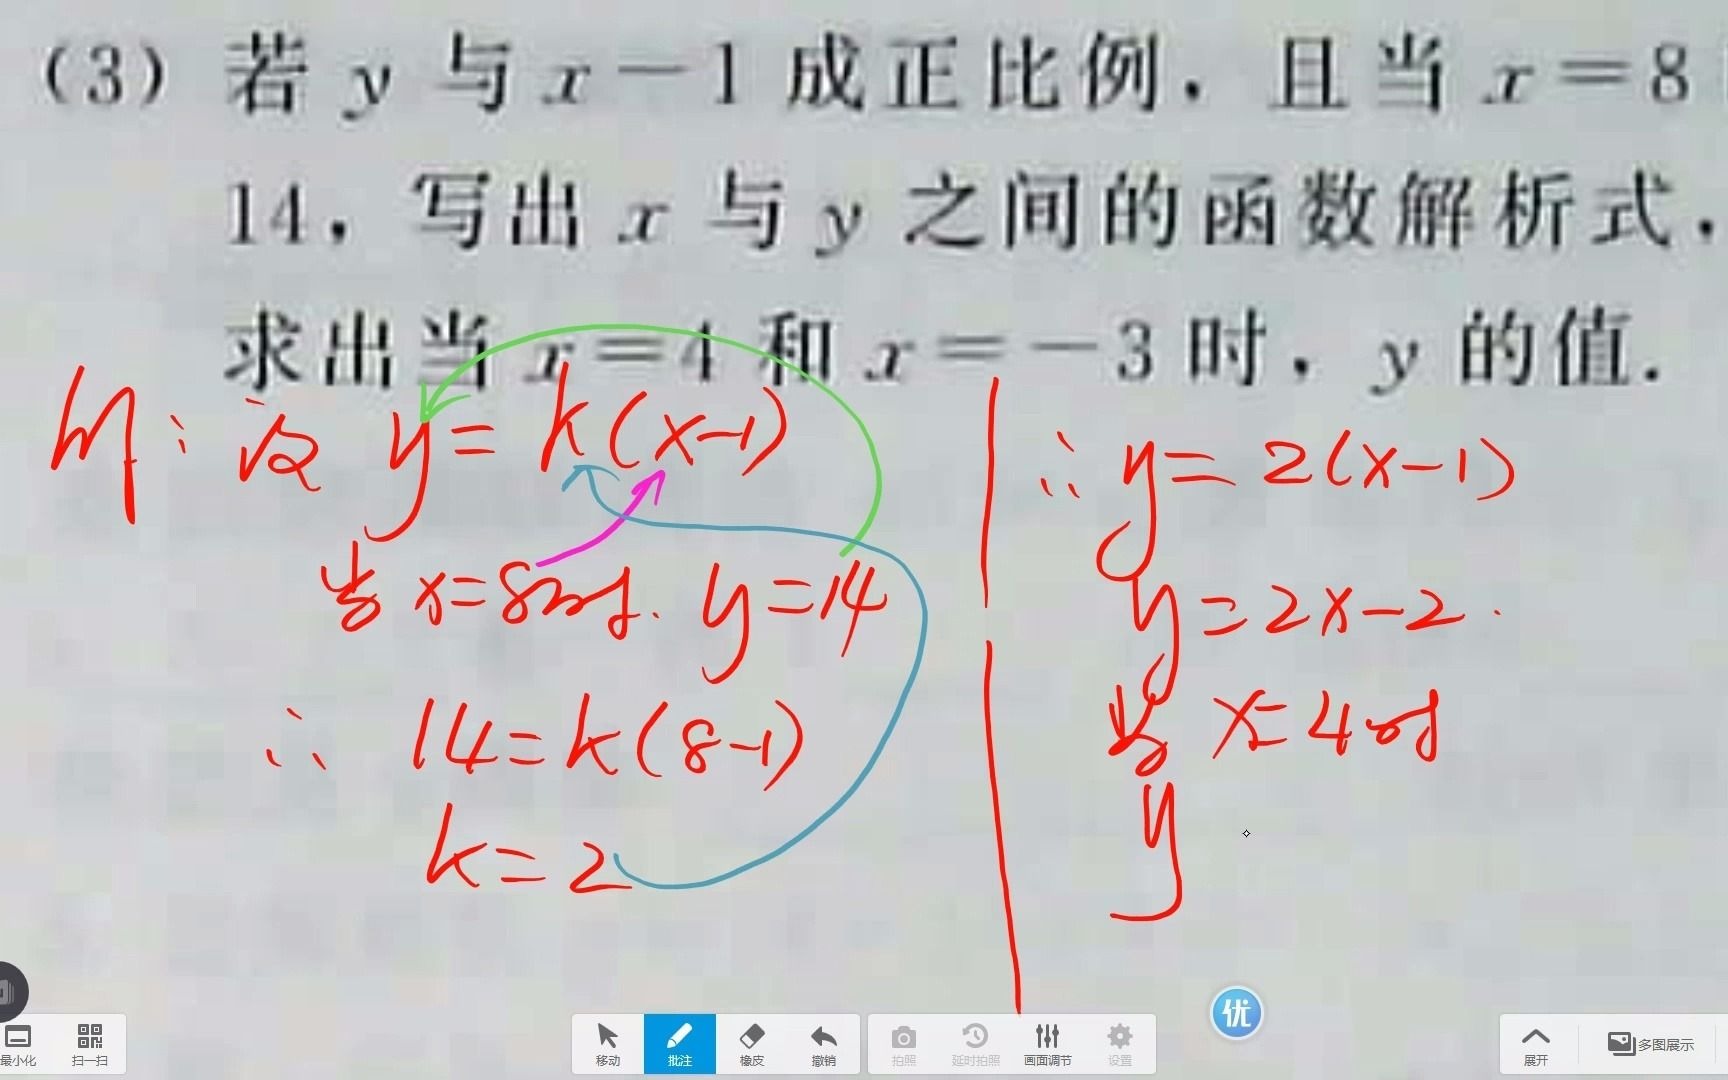 (3) 若 y 与 x－1 成正比例，且当 x＝8
14，写出 x 与 y 之间的函数解析式，
求出当 x＝4 和 x＝－3 时，y 的值.
设 y = k(x-1)
当 x=8时. y=14
∴ 14=k(8-1)
k=2
∴ y=2(x-1)
y=2x-2.
当 x=4时
y
优
最小化
扫一扫
移动
批注
橡皮
撤销
拍照
延时拍照
画面调节
设置
展开
多图展示